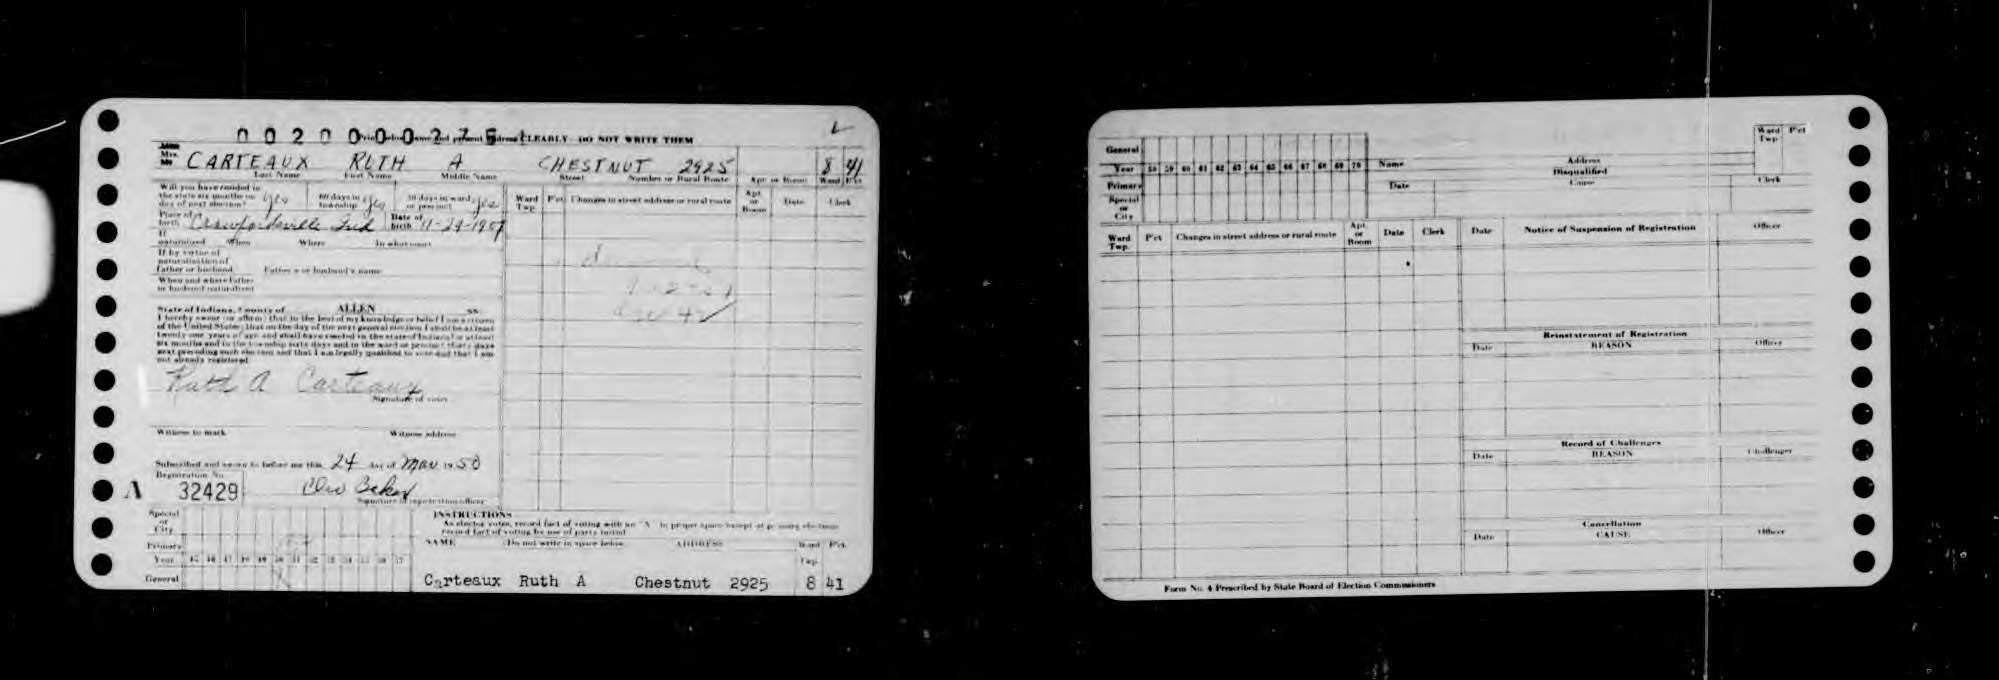 0020000275
CLEARLY - DO NOT WRITE THEM
Mrs. CARTEAUX RUTH A CHESTNUT 2925 8 41
Last Name First Name Middle Name Street Number or Rural Route Apt. or Room Ward P'ct
Will you have resided in
the state six months on
day of next election? yes 60 days in township yes 30 days in ward or precinct yes
Ward Twp. P'ct Changes in street address or rural route Apt. or Room Date Clerk
Place of birth Crawfordsville Ind Date of birth 11-29-1907
If naturalized When Where In what court
If by virtue of
naturalization of
father or husband Father's or husband's name
When and where father
or husband naturalized
State of Indiana, County of ALLEN ss:
I hereby swear (or affirm) that to the best of my knowledge or belief I am a citizen
of the United States; that on the day of the next general election I shall be at least
twenty-one years of age and shall have resided in the state of Indiana for at least
six months and in the township sixty days and in the ward or precinct thirty days
next preceding such election and that I am legally qualified to vote and that I am
not already registered.
Ruth A Carteaux
Signature of voter
Witness to mark Witness address
Subscribed and sworn to before me this 24 day of Mar 1950
Registration No.
A 32429
Signature of registration officer
INSTRUCTIONS
As elector votes, record fact of voting with an "X" in proper space except at primary elections
record fact of voting by use of party initial
Special or City
Primary
Year 45 46 47 48 49 50 51 52 53 54 55 56 57
General
NAME (Do not write in space below) ADDRESS Ward Twp. P'ct.
Carteaux Ruth A Chestnut 2925 8 41
General
Year 58 59 60 61 62 63 64 65 66 67 68 69 70
Primary
Special or City
Name Address Ward Twp P'ct
Disqualified
Date Cause Clerk
Ward Twp. P'ct Changes in street address or rural route Apt. or Room Date Clerk
Date Notice of Suspension of Registration Officer
Reinstatement of Registration
Date REASON Officer
Record of Challenges
Date REASON Challenger
Cancellation
Date CAUSE Officer
Form No. 4 Prescribed by State Board of Election Commissioners